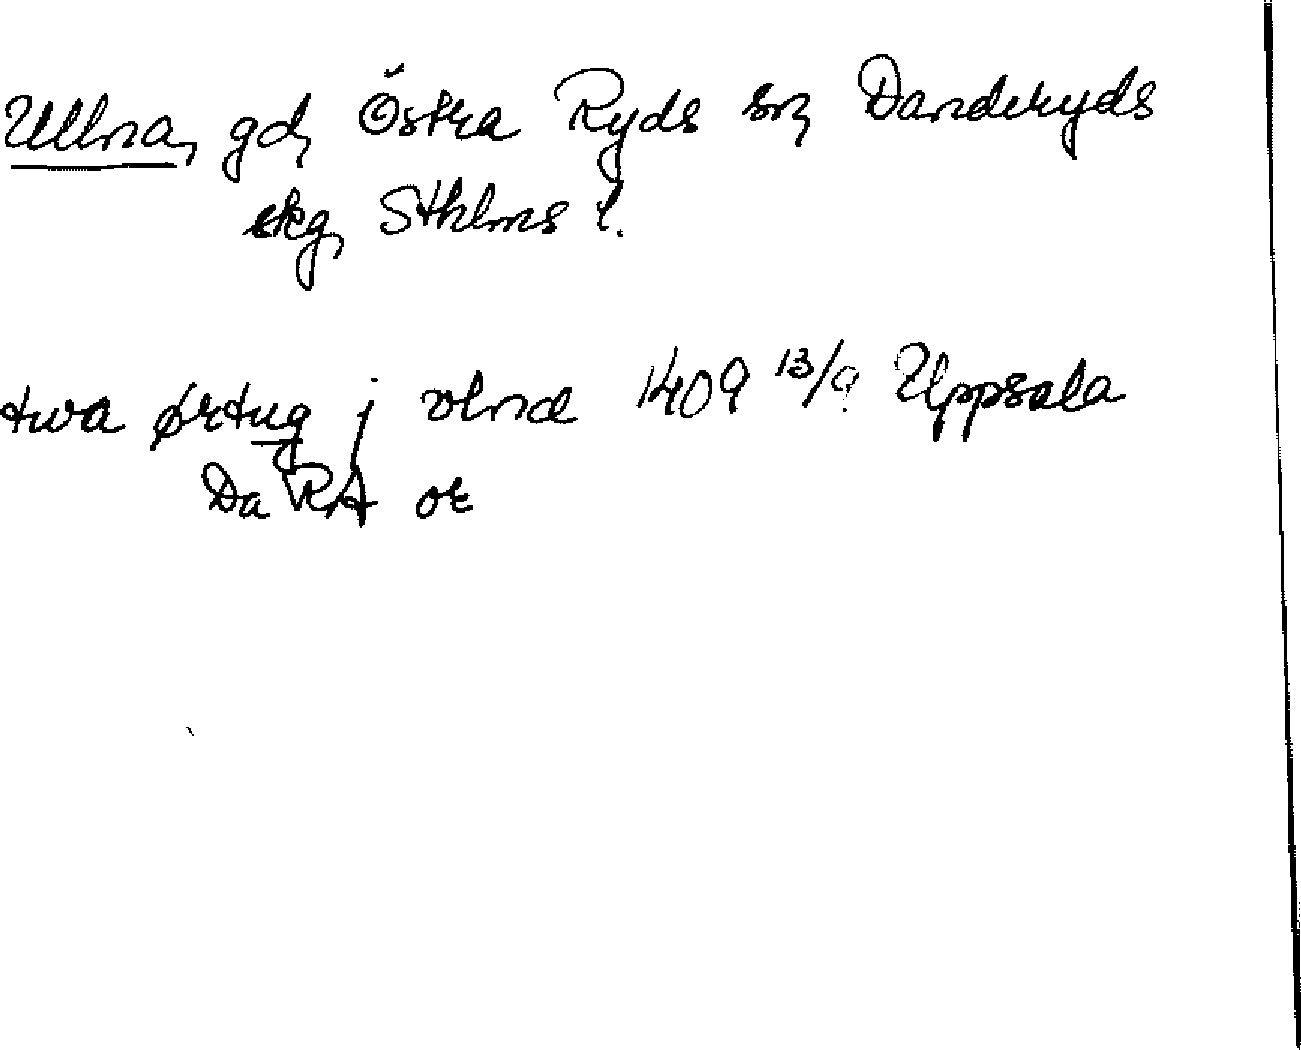 Ullna, gd, Östra Ryds sn, Danderyds
skg, Sthlms l.
twa ørtug j vlnæ 1409 13/9 Uppsala
Da RA or